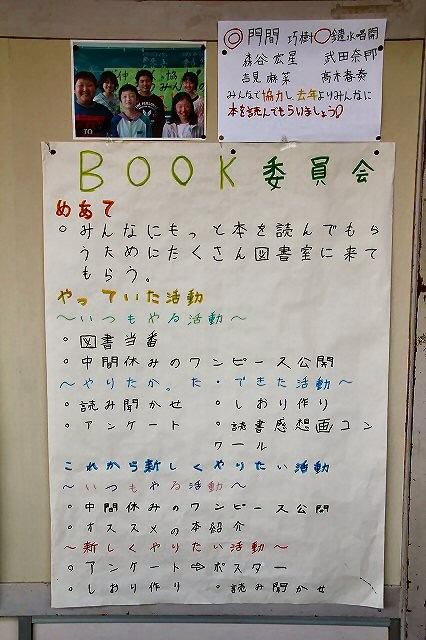 ◎門間 巧樹 ○鏡水唱開
森谷宏星 武田奈那
吉見麻菜 高木春奏
みんなで協力し、去年よりみんなに
本を読んでもらいましょう♡
BOOK 委員会
めあて
○みんなにもっと本を読んでもら
うためにたくさん図書室に来て
もらう。
やっていた活動
〜いつもやる活動〜
○図書当番
○中間休みのワンピース公開
〜やりたか。た・できた活動〜
○読み聞かせ ○しおり作り
○アンケート ○読書感想画コン
クール
これから新しくやりたい活動
〜いつもやる活動〜
○中間休みのワンピース公開
○オススメの本紹介
〜新しくやりたい活動〜
○アンケート⇨ポスター
○しおり作り ○読み聞かせ